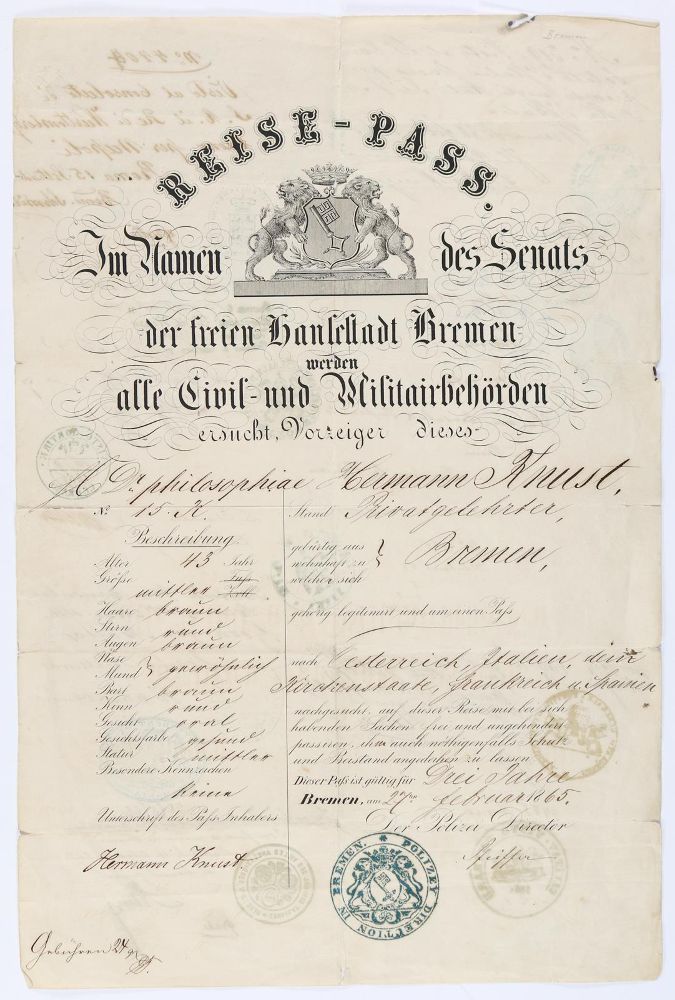 Bremen
REISE-PASS.
Im Namen des Senats
der freien Hansestadt Bremen
werden
alle Civil- und Militairbehörden
ersucht, Vorzeiger dieses
Dr philosophiae Hermann Knust,
No 15. K.
Beschreibung.
Alter 43 Jahr
Größe Fuß
mittler Zoll
Haare braun
Stirn rund
Augen braun
Nase
Mund } gewöhnlich
Bart braun
Kinn rund
Gesicht oval
Gesichtsfarbe gesund
Statur mittler
Besondere Kennzeichen
keine
Unterschrift des Paß-Inhabers
Hermann Knust
Stand Privatgelehrter,
gebürtig aus
wohnhaft zu } Bremen,
welcher sich
gehörig legitimirt und um einen Paß
nach Oesterreich, Italien, dem
Kirchenstaate, Frankreich u. Spanien
nachgesucht, auf dieser Reise mit bei sich
habenden Sachen frei und ungehindert
passiren, ihm auch nöthigenfalls Schutz
und Beistand angedeihen zu lassen
Dieser Paß ist gültig für Drei Jahre
Bremen, am 27ten Februar 1865.
Der Polizei Director
Pfeiffer
POLIZEY DIREKTION IN BREMEN.
Gebühren 24 gr